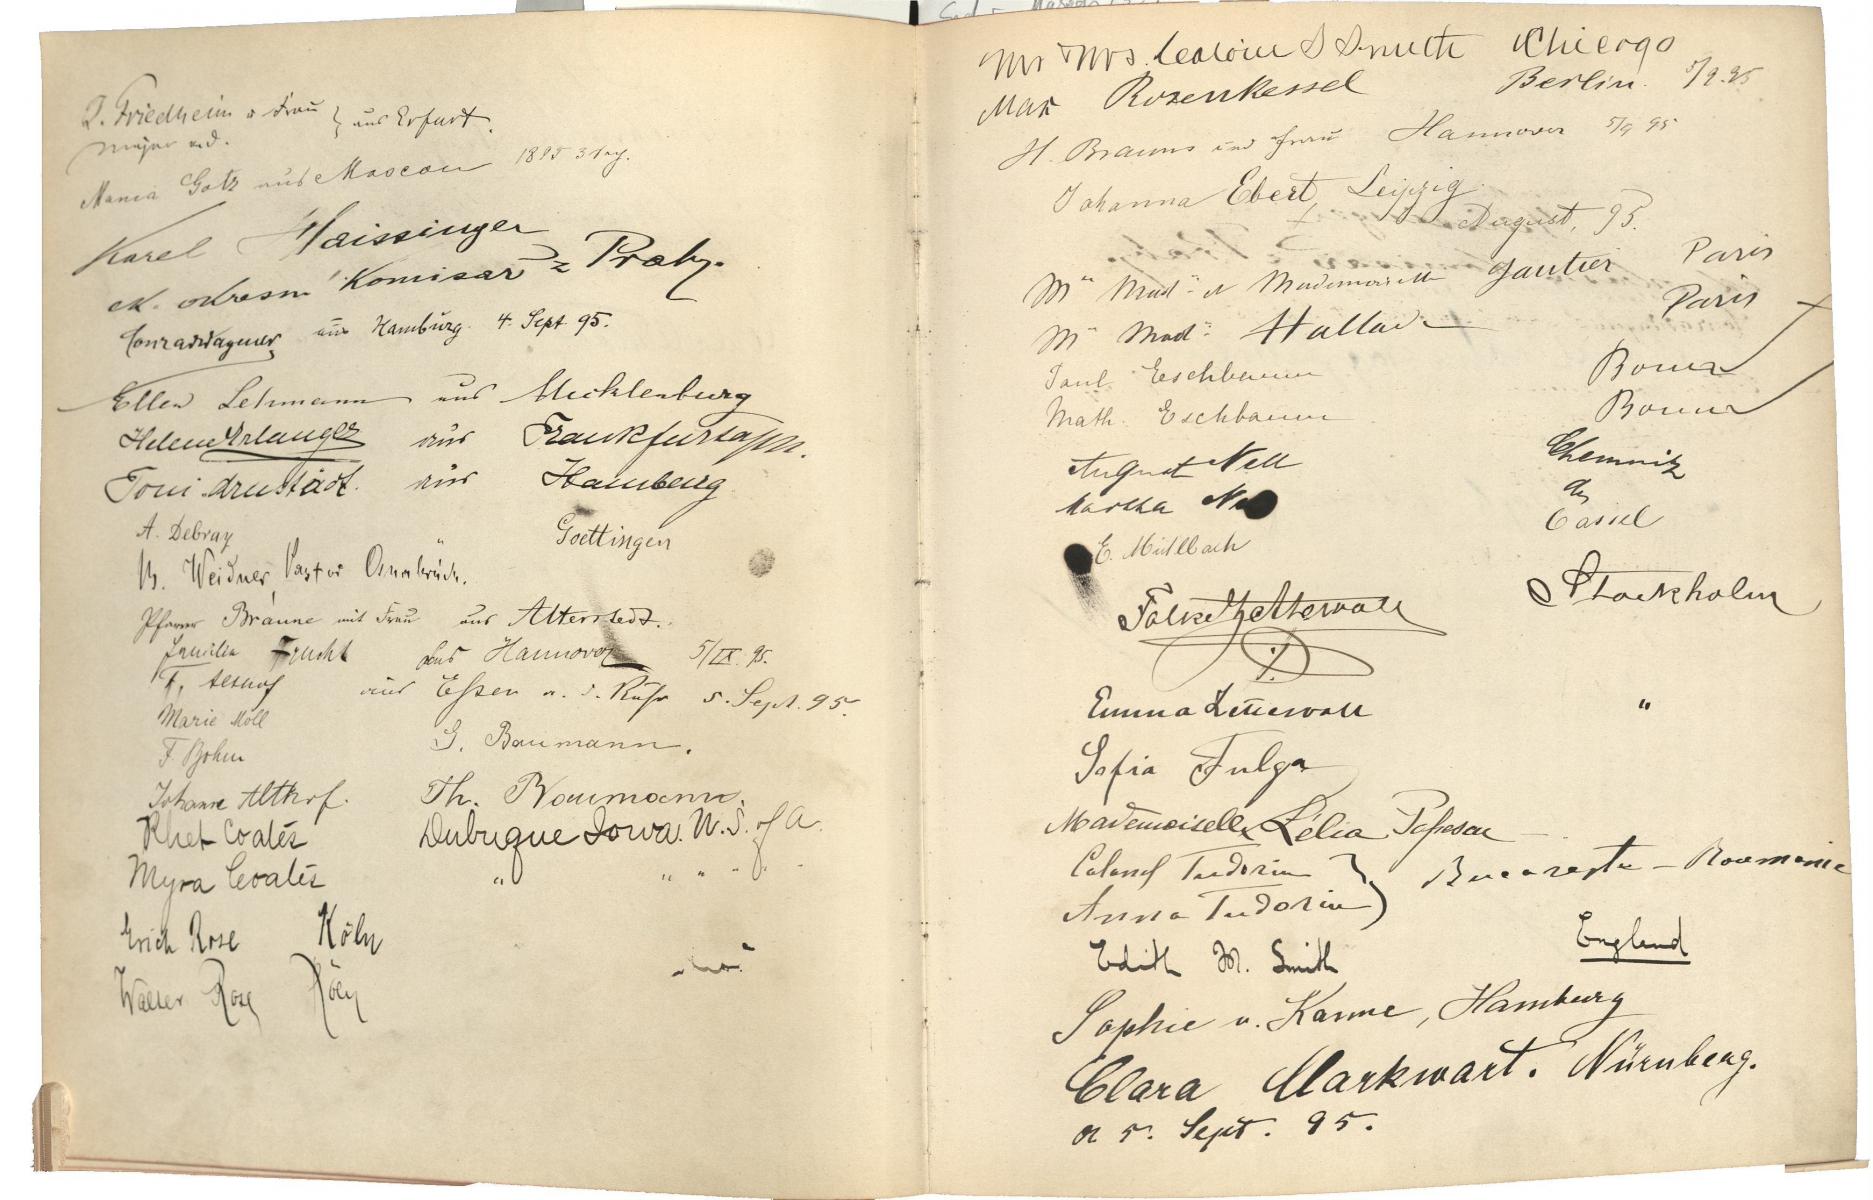 Friedheim u Frau } aus Erfurt.
Major a.d.
Mania Gotz aus Moscau 1895 3 Sep.
Karel Haissinger
ck. okresní Komisař z Prahy.
Conrad Wagner aus Hamburg. 4. Sept 95.
Ellen Lehmann aus Mecklenburg
Helene Erlanger aus Frankfurt a/M.
Toni Arnstädt. aus Hamburg
A. Debray Goettingen
Weidner, Pastor Osnabrück.
Pfarrer Braune mit Frau aus Altersted.
Familie Frucht aus Hannover 5/IX. 95.
aus Essen a. d. Ruhr 5. Sept. 95.
Marie Moll
G. Baumann.
F. Bohm
Johann Althof. Th. Baumann.
Rhet Coates Dubuque Iowa. U. S. of A.
Myra Coates " " " " "
Erich Rose Köln
Walter Rose Köln
Mr & Mrs. S Smith Chicago
Max Rosenkessel Berlin. 5/9.95
H. Brauns und Frau Hannover 5/9 95
Johanna Ebert, Leipzig.
August, 95.
Mr Mad. et Mademoiselle Gautier Paris
Mr Mad. Paris
Paul Eschbaum Bonn
Math. Eschbaum Bonn
August Nell Chemnitz
Martha
E. Mühlbach Cassel
Folke Zettervall Stockholm
Emma Zettervall "
Sofia Fulga
Mademoiselle Lélia Popescu
Colonel Tudoriu }
Anna Tudoriu } Bucarest - Roumanie
Edith M. Smith England
Sophie v. Kanne, Hamburg
Clara Markwart. Nürnberg.
5. Sept. 95.